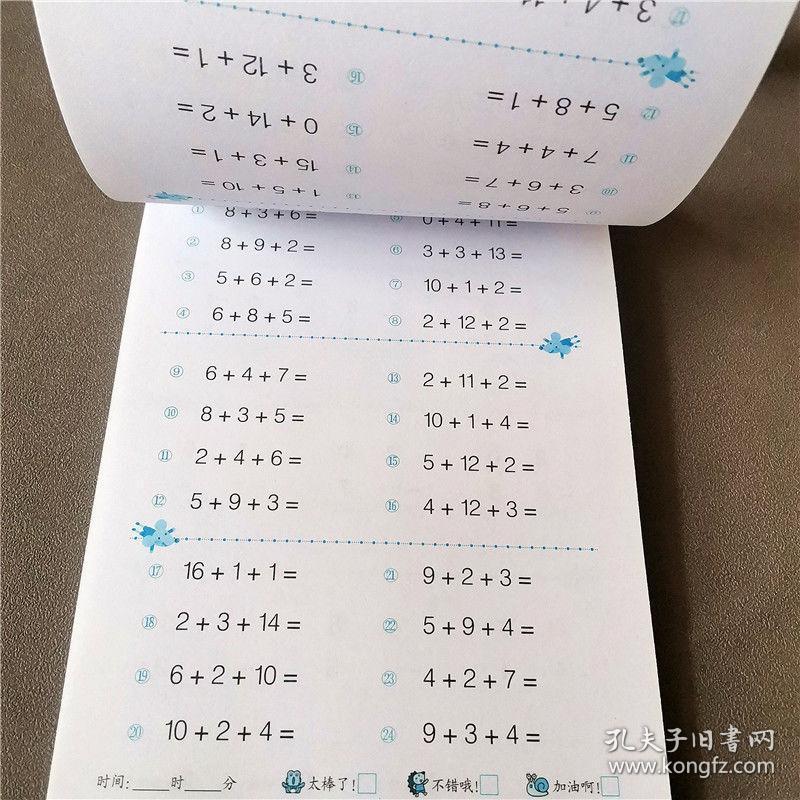 ⑰ 3+4+11
⑯ 3+12+1=
⑫ 5+8+1=
⑮ 0+14+2=
⑪ 7+4+4=
⑭ 15+3+1=
⑩ 3+6+7=
⑬ 1+5+10=
⑨ 5+6+8=
① 8+3+6= ⑤ 0+4+11=
② 8+9+2= ⑥ 3+3+13=
③ 5+6+2= ⑦ 10+1+2=
④ 6+8+5= ⑧ 2+12+2=
⑨ 6+4+7= ⑬ 2+11+2=
⑩ 8+3+5= ⑭ 10+1+4=
⑪ 2+4+6= ⑮ 5+12+2=
⑫ 5+9+3= ⑯ 4+12+3=
⑰ 16+1+1= ㉑ 9+2+3=
⑱ 2+3+14= ㉒ 5+9+4=
⑲ 6+2+10= ㉓ 4+2+7=
⑳ 10+2+4= ㉔ 9+3+4=
时间:____时____分 太棒了!□ 不错哦!□ 加油啊!□
孔夫子旧书网
www.kongfz.com